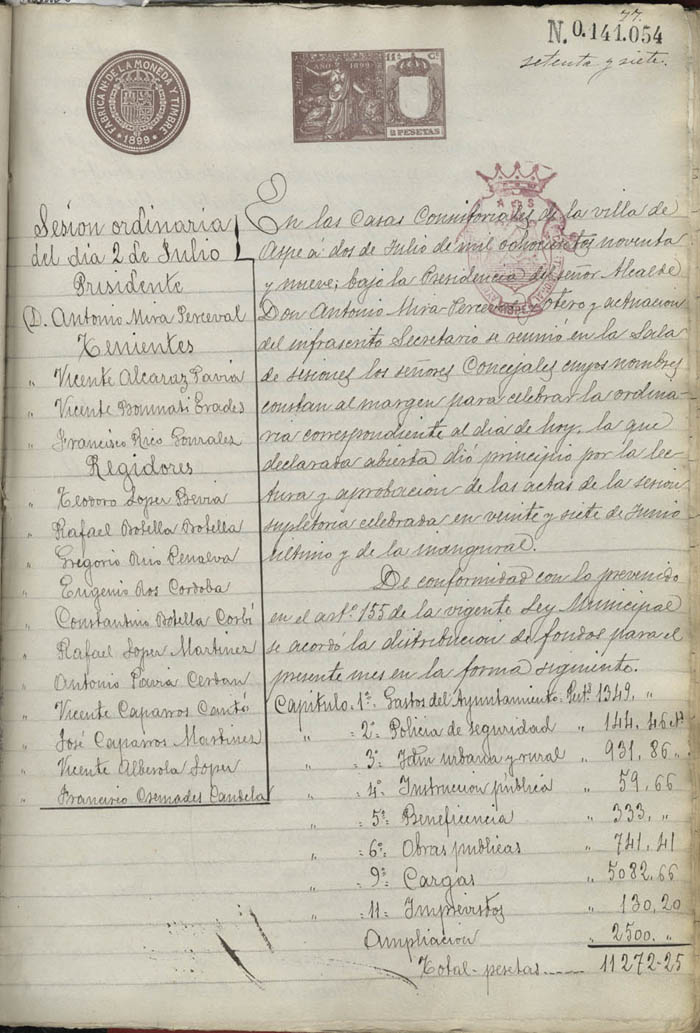 77.
N. 0.141.054
setenta y siete.
FABRICA Nal DE LA MONEDA Y TIMBRE
1899
AÑO 1899
11ª Cª
2 PESETAS
Sesion ordinaria
del dia 2 de Julio
Presidente
D. Antonio Mira Perceval
Tenientes
" Vicente Alcaraz Pavia
" Vicente Bonmati Erades
" Francisco Rico Gonzalez
Regidores
" Teodoro Loper Bevia
" Rafael Botella Botella
" Gregorio Rico Penalva
" Eugenio Ros Cordoba
" Constantino Botella Corbi
" Rafael Loper Martinez
" Antonio Pavia Cerdan
" Vicente Caparros Cantó
" José Caparros Martinez
" Vicente Alberola Loper
" Francisco Cremades Candela
En las Casas Consistoriales de la villa de
Aspe á dos de Julio de mil ochocientos noventa
y nueve; bajo la Presidencia del señor Alcalde
Don Antonio Mira-Perceval Otero y actuacion
del infrascrito Secretario se reunió en la Sala
de sesiones los señores Concejales cuyos nombres
constan al margen para celebrar la ordina-
ria correspondiente al dia de hoy, la que
declarada abierta dió principio por la lec-
tura y aprobacion de las actas de la sesion
supletoria celebrada en veinte y siete de Junio
último y de la inaugural.
De conformidad con lo prevenido
en el artº. 155 de la vigente Ley Municipal
se acordó la distribucion de fondos para el
presente mes en la forma siguiente.
Capitulo. 1º. Gastos del Ayuntamiento. Pest.ˢ 1349, "
" " 2º Policia de seguridad " 144.46 cts.
" " 3º Idm urbana y rural " 931,86 "
" = 4º Instruccion publica " 59,66
" = 5º Beneficencia " 333, "
" = 6º Obras publicas " 741,41
" = 9º Cargas " 5082,66
" = 11= Imprevistos " 130,20
Ampliacion " 2500. "
Total-pesetas ----- 11272-25